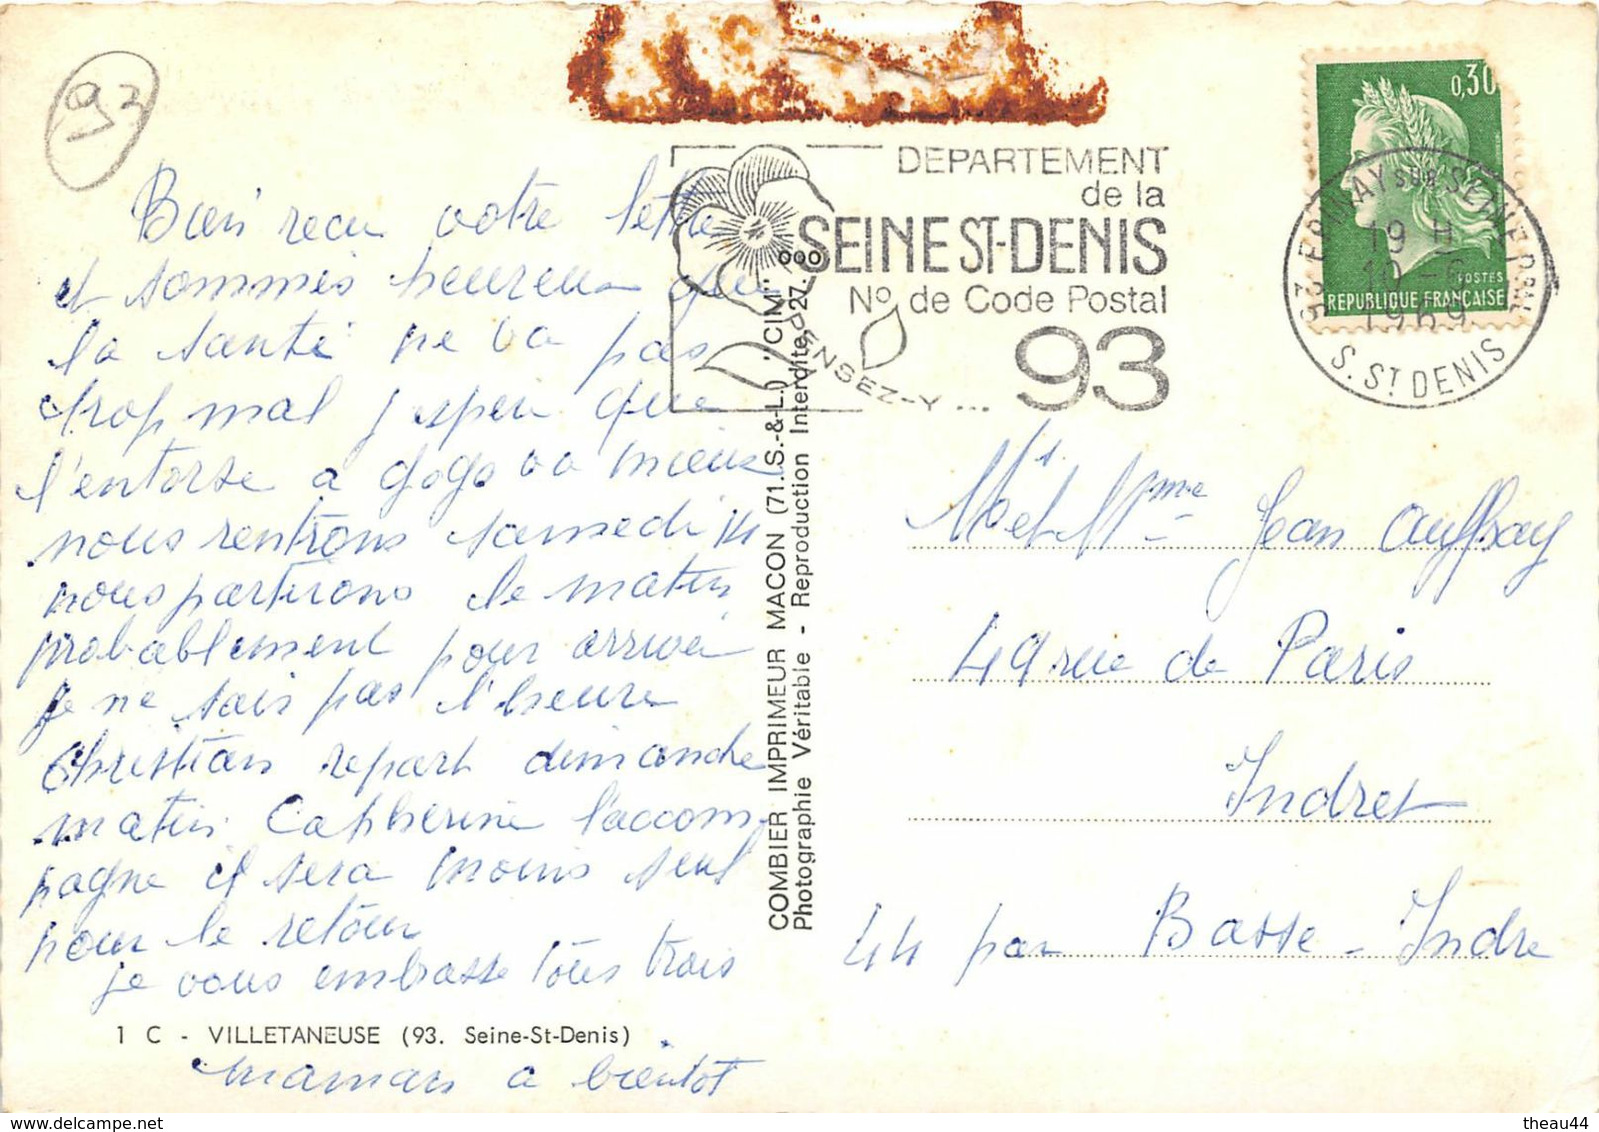 92
Bien recu votre lettre
et sommes heureux que
la santé ne va pas
trop mal j'espere que
l'entorse a gogo va mieux
nous rentrons samedi 14
nous partirons le matin
probablement pour arriver
je ne sais pas l'heure
Christian repart dimanche
matin Catherine l'accom-
pagne il sera moins seul
pour le retour
je vous embrasse tous trois
1 C - VILLETANEUSE (93. Seine-St-Denis)
maman a bientot
COMBIER IMPRIMEUR MACON (71. S.-&-L.) "CIM"
Photographie Véritable - Reproduction Interdite 27.
DEPARTEMENT
de la
SEINE ST-DENIS
No de Code Postal
93
PENSEZ-Y ...
0,30
POSTES
REPUBLIQUE FRANÇAISE
93 EPINAY SUR SEINE PPAL
19 H
10 - 6
1969
S. ST DENIS
Mr et Mme Jean Auffray
49 rue de Paris
Indret
44 par Basse-Indre
delcampe.net
theau44